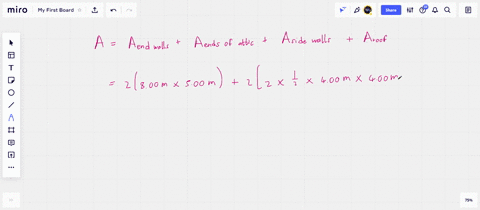 miro My First Board Share
A = A end walls + A ends of attic + A side walls + A roof
= 2 ( 8.00 m x 5.00 m ) + 2 [ 2 x 1/2 x 4.00 m x 4.00 m
79%